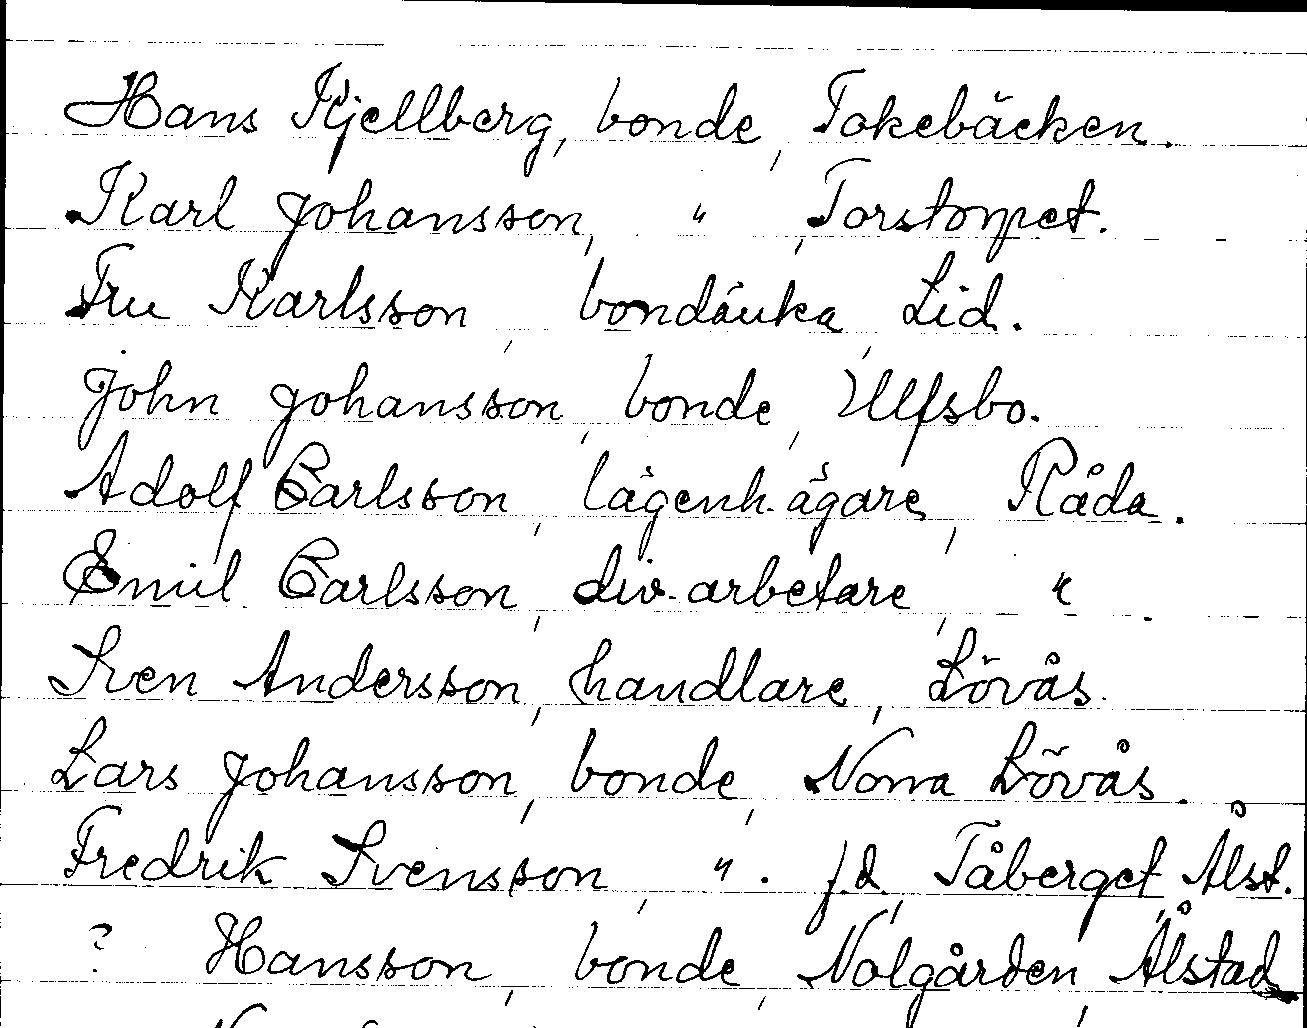 Hans Kjellberg, bonde, Tokebäcken.
Karl Johansson, " , Torstorpet.
Fru Karlsson, bondänka, Lid.
John Johansson, bonde, Ulfsbo.
Adolf Carlsson, lägenh.ägare, Råda.
Emil Carlsson, div.arbetare, " .
Sven Andersson, handlare, Lövås.
Lars Johansson, bonde, Norra Lövås.
Fredrik Svensson, " . f.d., Tåberget, Ålst.
? Hansson, bonde, Nolgården, Ålstad